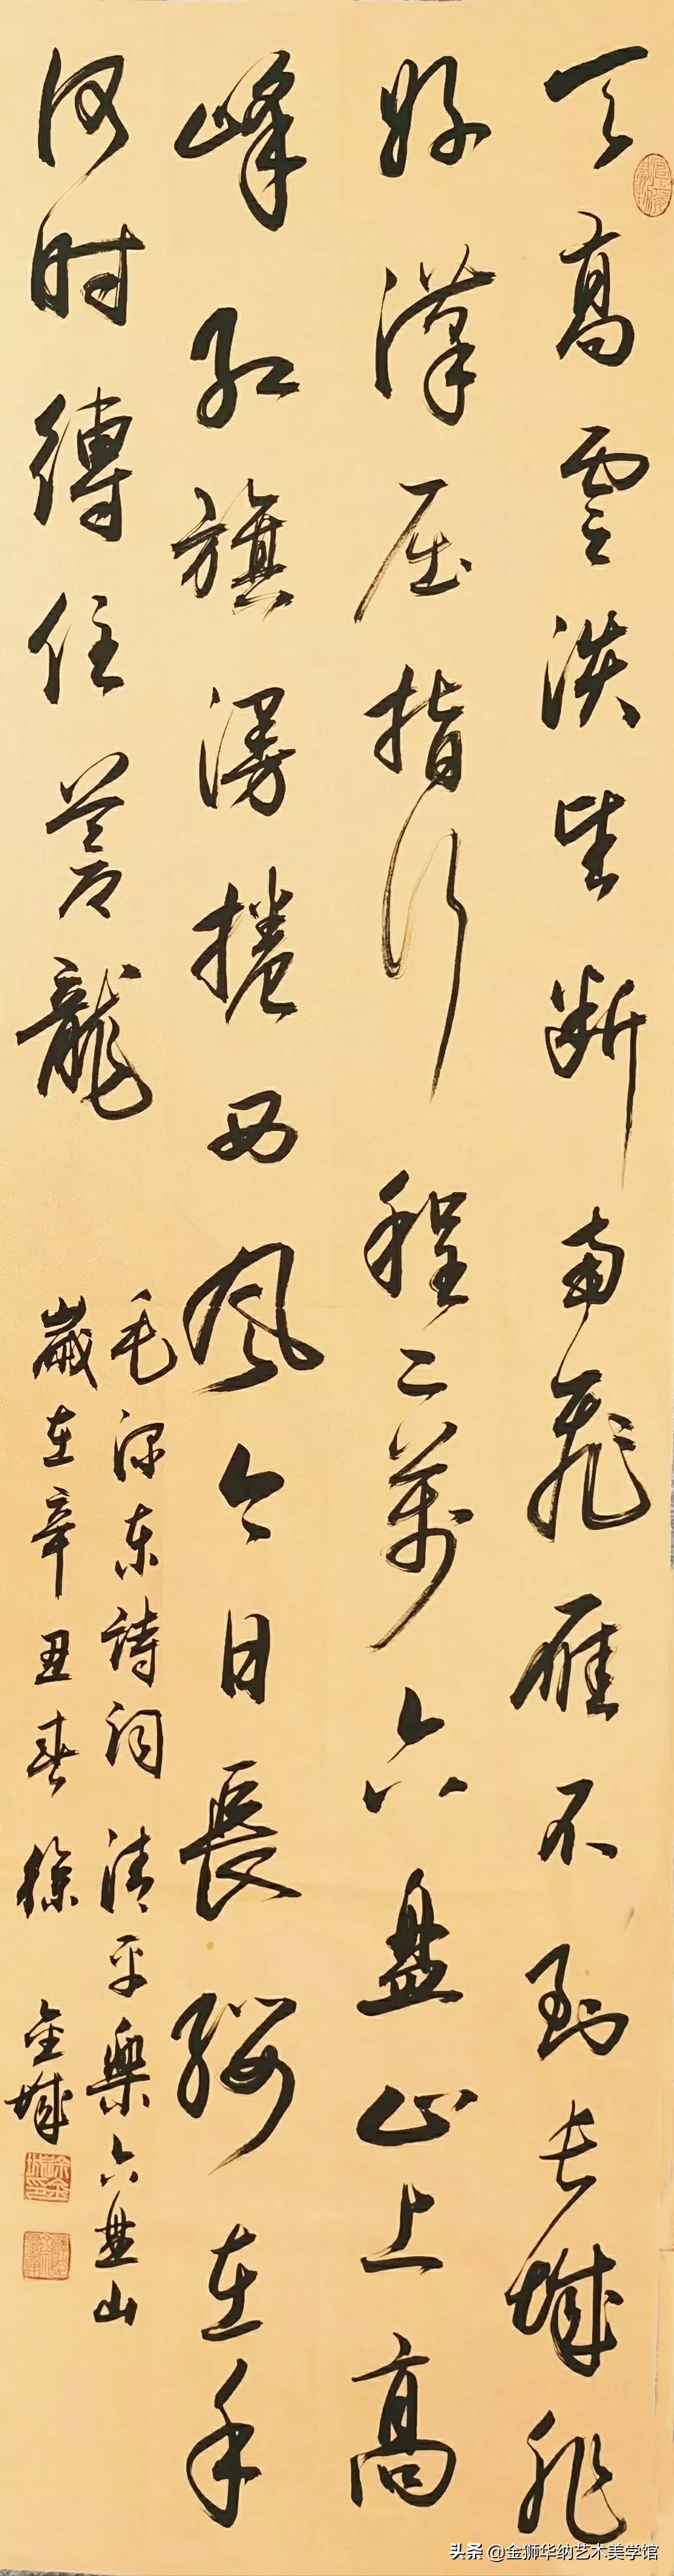 天高雲淡望断南飛雁不到长城非
好漢屈指行程二萬六盘山上高
峰红旗漫捲西风今日長缨在手
何时縛住苍龍
毛泽东詩词清平樂六盘山
歲在辛丑春徐金城
头条 @金狮华纳艺术美学馆